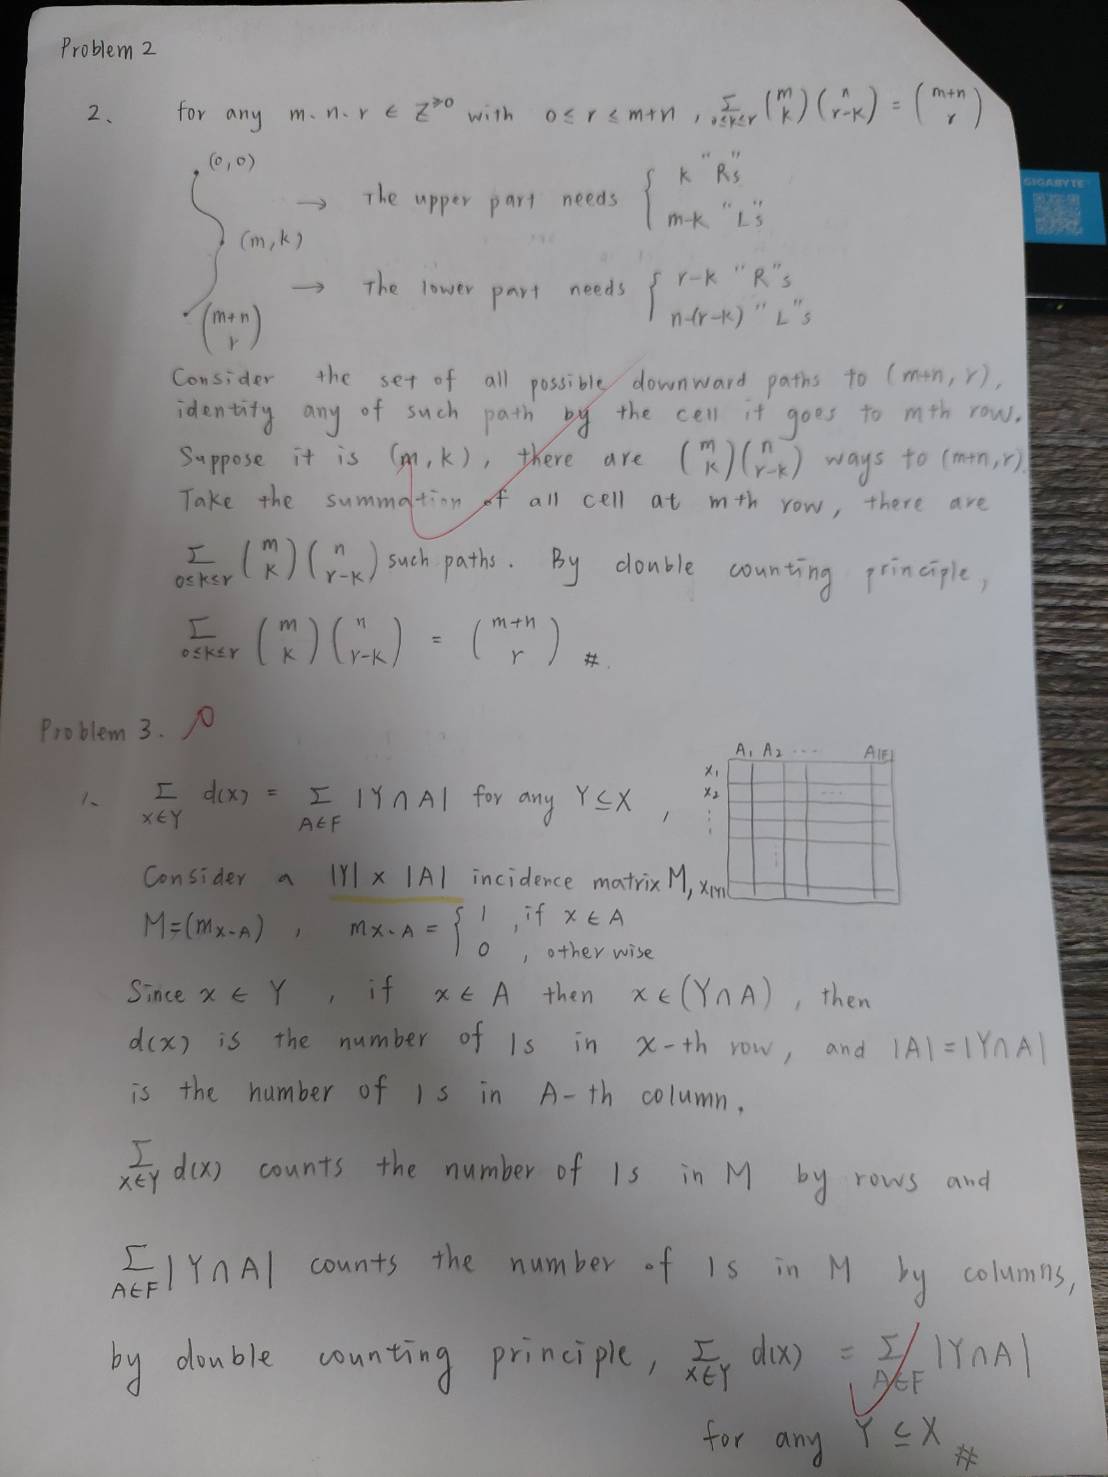 Problem 2
2、 for any m、n、r ∈ Z^≥0 with 0 ≤ r ≤ m+n , Σ_{0≤k≤r} (m k)(n r-k) = (m+n r)
(0,0)
→ The upper part needs { k "R"s
m-k "L"s
(m,k)
→ The lower part needs { r-k "R"s
n-(r-k) "L"s
(m+n r)
GIGABYTE
Consider the set of all possible downward paths to (m+n, r),
identity any of such path by the cell it goes to mth row.
Suppose it is (m,k), there are (m k)(n r-k) ways to (m+n,r)
Take the summation of all cell at mth row, there are
Σ_{0≤k≤r} (m k)(n r-k) such paths. By double counting principle,
Σ_{0≤k≤r} (m k)(n r-k) = (m+n r) #.
Problem 3.
A1 A2 ... A|F|
x1
x2
⋮
x|Y|
1、 Σ_{x∈Y} d(x) = Σ_{A∈F} |Y∩A| for any Y⊆X ,
Consider a |Y| x |A| incidence matrix M,
M=(mx-A) , mx-A = { 1 , if x ∈ A
0 , otherwise
Since x ∈ Y , if x ∈ A then x ∈ (Y∩A) , then
d(x) is the number of 1s in x-th row, and |A|=|Y∩A|
is the number of 1s in A-th column.
Σ_{x∈Y} d(x) counts the number of 1s in M by rows and
Σ_{A∈F} |Y∩A| counts the number of 1s in M by columns,
by double counting principle, Σ_{x∈Y} d(x) = Σ_{A∈F} |Y∩A|
for any Y⊆X #